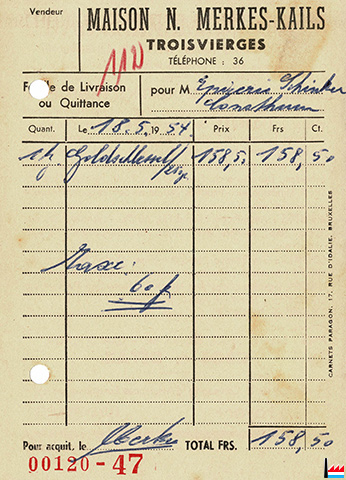 Vendeur
MAISON N. MERKES-KAILS
TROISVIERGES
TÉLÉPHONE : 36
1120
Fe le de Livraison
ou Quittance
pour M. Epicerie Schinker
Consthum
Quant. Le 18.5.1954. Prix Frs Ct.
158,5 158,50
Taxe:
60 f
CARNETS PARAGON, 17, RUE D'IDALIE, BRUXELLES
Pour acquit, le Merkes TOTAL FRS. 158,50
00120-47